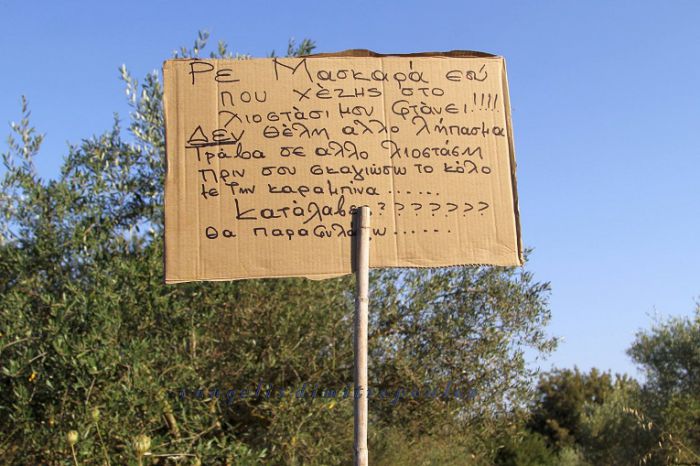 Ρε Μασκαρά εσύ
που χέζης στο
λιοστάσι μου φτάνει!!!!
ΔΕΝ θέλη αλλο λήπασμα
Τράβα σε αλλο λιοστάση
πριν σου σκαγιώσω το κόλο
με την καραμπίνα ......
Κατάλαβες???????
θα παραφυλάω ......
vangelis dimitropoulos